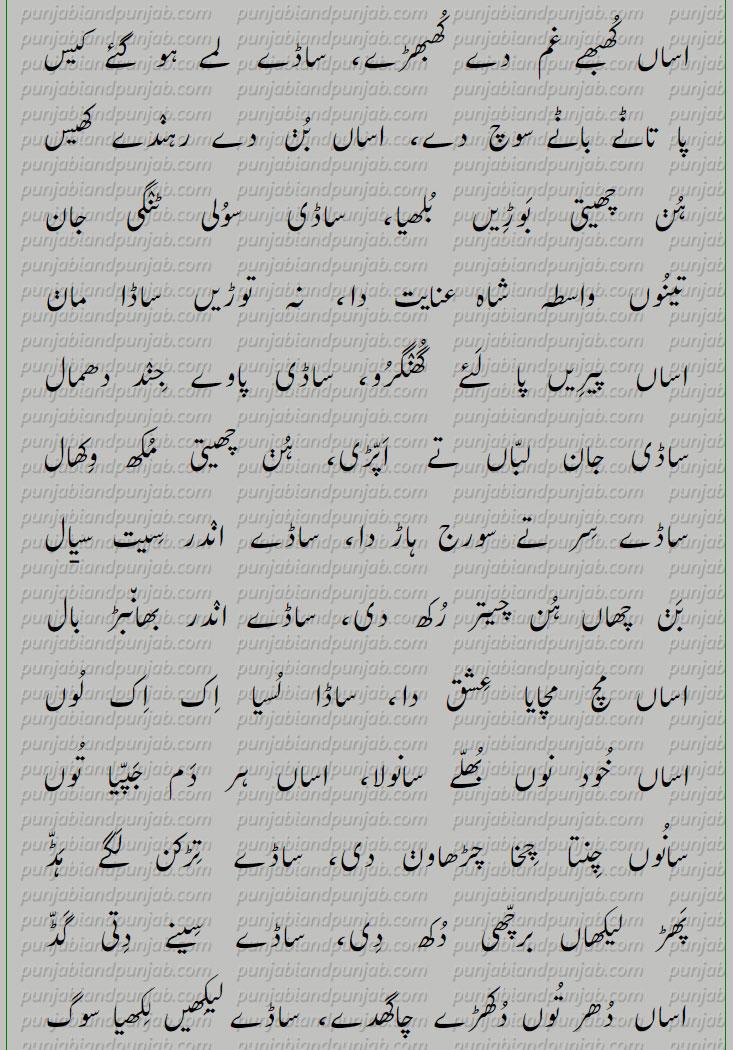 اساں کُھبھے غم دے کُھبھڑے، ساڈے لمے ہو گئے کیس
پا تانݨے بانݨے سوچ دے، اساں بُݨ دے رہندے کھیس
ہُݨ چھیتی بَوڑِیں بُلھیا، ساڈی سوُلی ٹنگی جان
تینُوں واسطہ شاہ عنایت دا، نہ توڑیں ساڈا ماݨ
اساں پیرِیں پا لَئے گُھنگرُو، ساڈی پاوے جِند دھمال
ساڈی جان لبّاں تے اَپّڑی، ہُݨ چھیتی مُکھ وِکھال
ساڈے سِر تے سورج ہاڑ دا، ساڈے اندر سِیت سیال
بَݨ چھاں ہُݨ چیتر رُکھ دی، ساڈے اندر بھانّبڑ بال
اساں مچ مچایا عِشق دا، ساڈا لُسیا اِک اِک لُوں
اساں خُود نوں بُھلّے سانولا، اساں ہر دَم جَپّیا تُوں
سانُوں چِنتا چِخا چڑھاوݨ دی، ساڈے تِڑکن لَگے ہَڈّ
پَھڑ لیکھاں برچّھی دُکھ دِی، ساڈے سِینے دِتی گَڈّ
اساں دُھر تُوں دُکھڑے چاگھدے، ساڈے لیکھیں لِکھیا سوگ